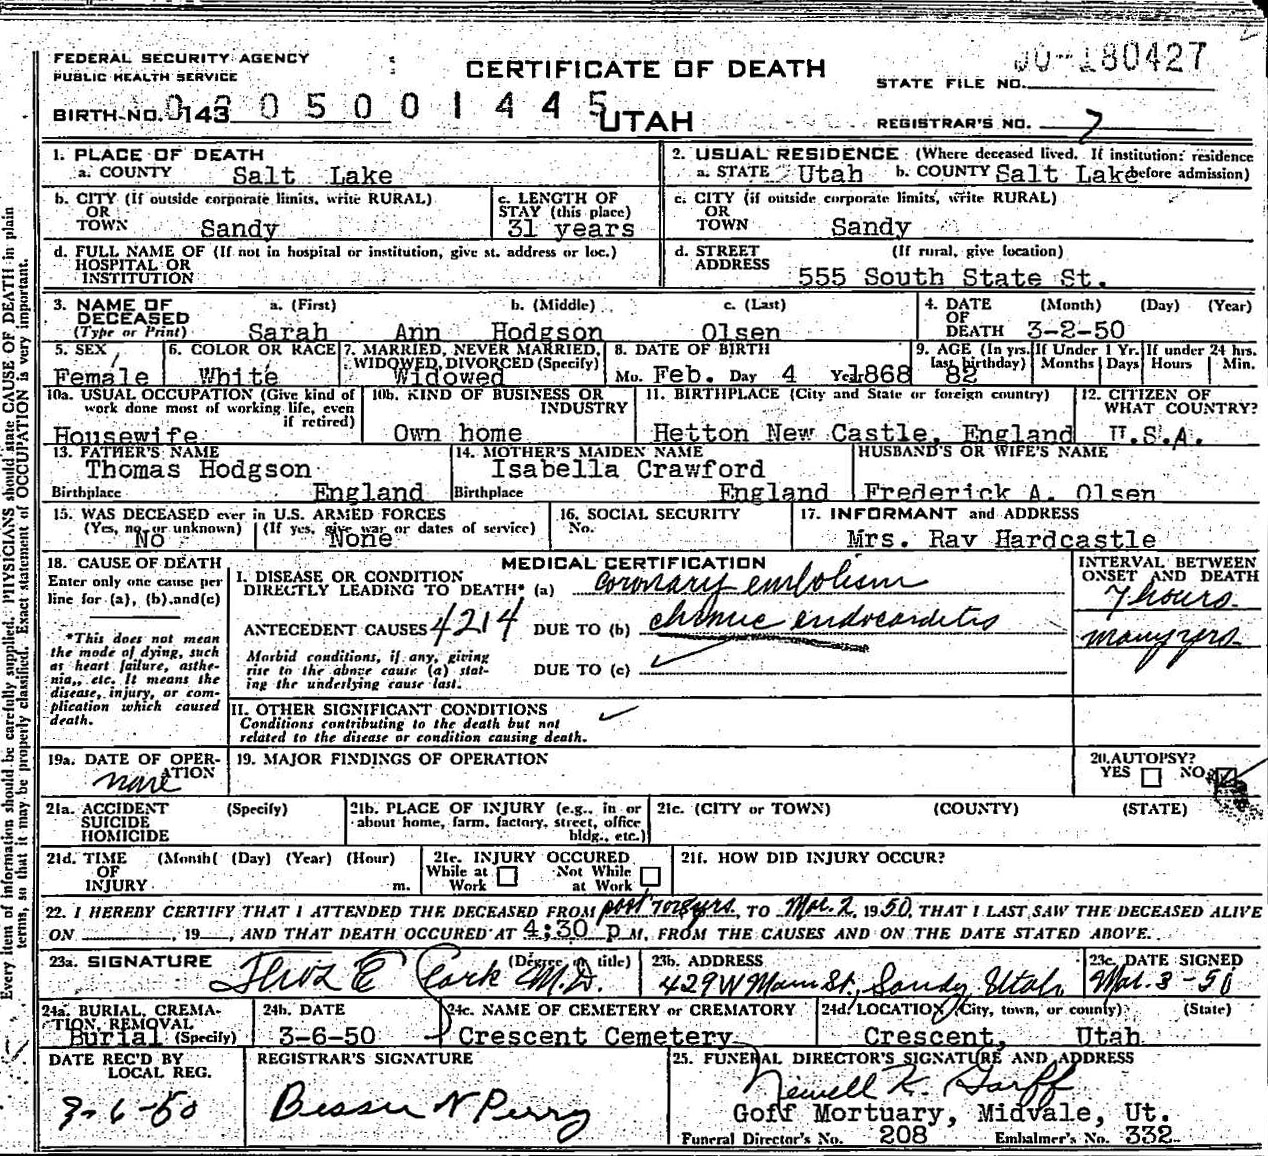 FEDERAL SECURITY AGENCY
PUBLIC HEALTH SERVICE
CERTIFICATE OF DEATH
STATE FILE NO. 180427
BIRTH NO. 143
0 5 0 0 1 4 4 5
UTAH
REGISTRAR'S NO. 7
Every item of information should be carefully supplied. PHYSICIANS should state CAUSE OF DEATH in plain
terms, so that it may be properly classified. Exact statement of OCCUPATION is very important.
1. PLACE OF DEATH
a. COUNTY Salt Lake
2. USUAL RESIDENCE (Where deceased lived. If institution: residence
a. STATE Utah b. COUNTY Salt Lake before admission)
b. CITY (If outside corporate limits, write RURAL)
OR
TOWN Sandy
c. LENGTH OF
STAY (this place)
31 years
c. CITY (if outside corporate limits, write RURAL)
OR
TOWN Sandy
d. FULL NAME OF (If not in hospital or institution, give st. address or loc.)
HOSPITAL OR
INSTITUTION
d. STREET (If rural, give location)
ADDRESS
555 South State St.
3. NAME OF a. (First) b. (Middle) c. (Last)
DECEASED
(Type or Print) Sarah Ann Hodgson Olsen
4. DATE (Month) (Day) (Year)
OF
DEATH 3-2-50
5. SEX
Female
6. COLOR OR RACE
White
7. MARRIED, NEVER MARRIED,
WIDOWED, DIVORCED (Specify)
Widowed
8. DATE OF BIRTH
Mo. Feb. Day 4 Year 1868
9. AGE (In yrs. If Under 1 Yr. If under 24 hrs.
last birthday) Months Days Hours Min.
82
10a. USUAL OCCUPATION (Give kind of
work done most of working life, even
if retired)
Housewife
10b. KIND OF BUSINESS OR
INDUSTRY
Own home
11. BIRTHPLACE (City and State or foreign country)
Hetton New Castle, England
12. CITIZEN OF
WHAT COUNTRY?
U.S.A.
13. FATHER'S NAME
Thomas Hodgson
Birthplace England
14. MOTHER'S MAIDEN NAME
Isabella Crawford
Birthplace England
HUSBAND'S OR WIFE'S NAME
Frederick A. Olsen
15. WAS DECEASED ever in U.S. ARMED FORCES
(Yes, no, or unknown) (If yes, give war or dates of service)
No None
16. SOCIAL SECURITY
No.
17. INFORMANT and ADDRESS
Mrs. Ray Hardcastle
18. CAUSE OF DEATH
Enter only one cause per
line for (a), (b), and (c)
*This does not mean
the mode of dying, such
as heart failure, asthe-
nia, etc. It means the
disease, injury, or com-
plication which caused
death.
MEDICAL CERTIFICATION
INTERVAL BETWEEN
ONSET AND DEATH
I. DISEASE OR CONDITION
DIRECTLY LEADING TO DEATH* (a) coronary embolism
7 hours
ANTECEDENT CAUSES 4214 DUE TO (b) chronic endocarditis
many yrs.
Morbid conditions, if any, giving
rise to the above cause (a) stat-
ing the underlying cause last.
DUE TO (c)
II. OTHER SIGNIFICANT CONDITIONS
Conditions contributing to the death but not
related to the disease or condition causing death.
19a. DATE OF OPER-
ATION
none
19. MAJOR FINDINGS OF OPERATION
20. AUTOPSY?
YES NO
21a. ACCIDENT (Specify)
SUICIDE
HOMICIDE
21b. PLACE OF INJURY (e.g., in or
about home, farm, factory, street, office
bldg., etc.)
21c. (CITY or TOWN) (COUNTY) (STATE)
21d. TIME (Month( (Day) (Year) (Hour)
OF
INJURY m.
21e. INJURY OCCURED
While at Not While
Work at Work
21f. HOW DID INJURY OCCUR?
22. I HEREBY CERTIFY THAT I ATTENDED THE DECEASED FROM past yrs. TO Mar. 2, 1950, THAT I LAST SAW THE DECEASED ALIVE
ON , 19 , AND THAT DEATH OCCURED AT 4:30 p M, FROM THE CAUSES AND ON THE DATE STATED ABOVE.
23a. SIGNATURE (Degree or title)
E Clark M.D.
23b. ADDRESS
429 W Main St., Sandy Utah
23c. DATE SIGNED
Mar. 3-50
24a. BURIAL, CREMA-
TION, REMOVAL
Burial (Specify)
24b. DATE
3-6-50
24c. NAME OF CEMETERY or CREMATORY
Crescent Cemetery
24d. LOCATION (City, town, or county) (State)
Crescent, Utah
DATE REC'D BY
LOCAL REG.
3-6-50
REGISTRAR'S SIGNATURE
Bessie N Perry
25. FUNERAL DIRECTOR'S SIGNATURE AND ADDRESS
Newell K. Garff
Goff Mortuary, Midvale, Ut.
Funeral Director's No. 208 Embalmer's No. 332